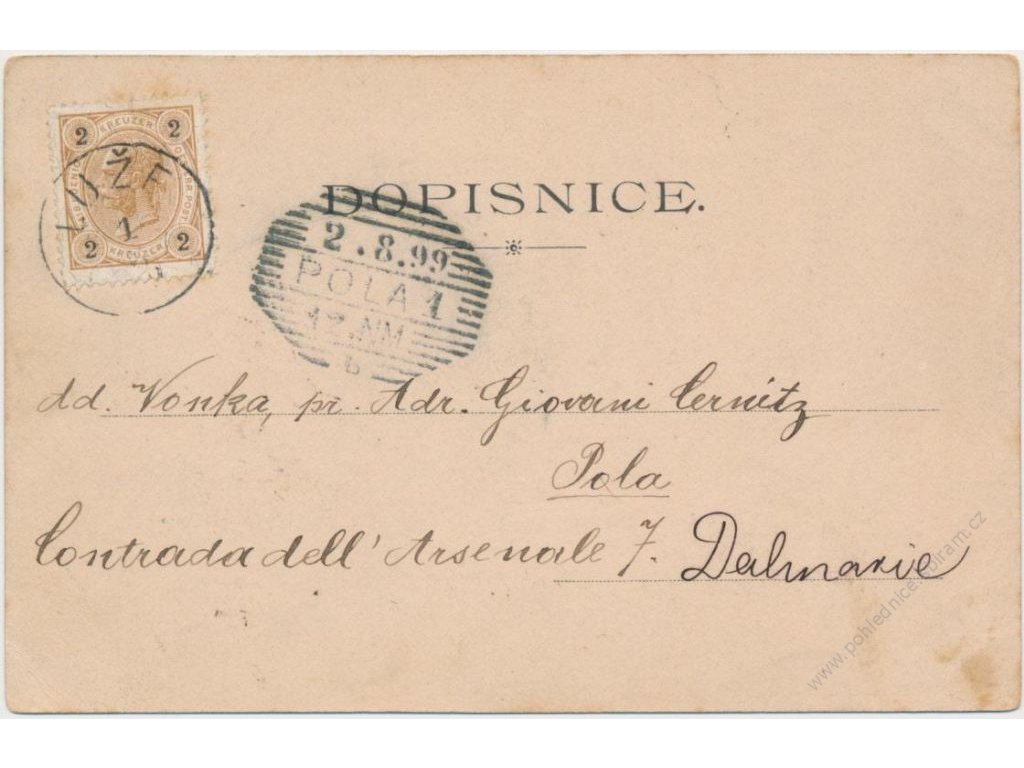 DOPISNICE.
2 KREUZER 2
2 KREUZER 2
LUŽE
1
2.8.99
POLA 1
12.NM
b
dd. Vonka, př. Adr. Giovani Cernitz
Pola
Contrada dell' Arsenale 7. Dalmacie
www.pohlednice-sbiram.cz